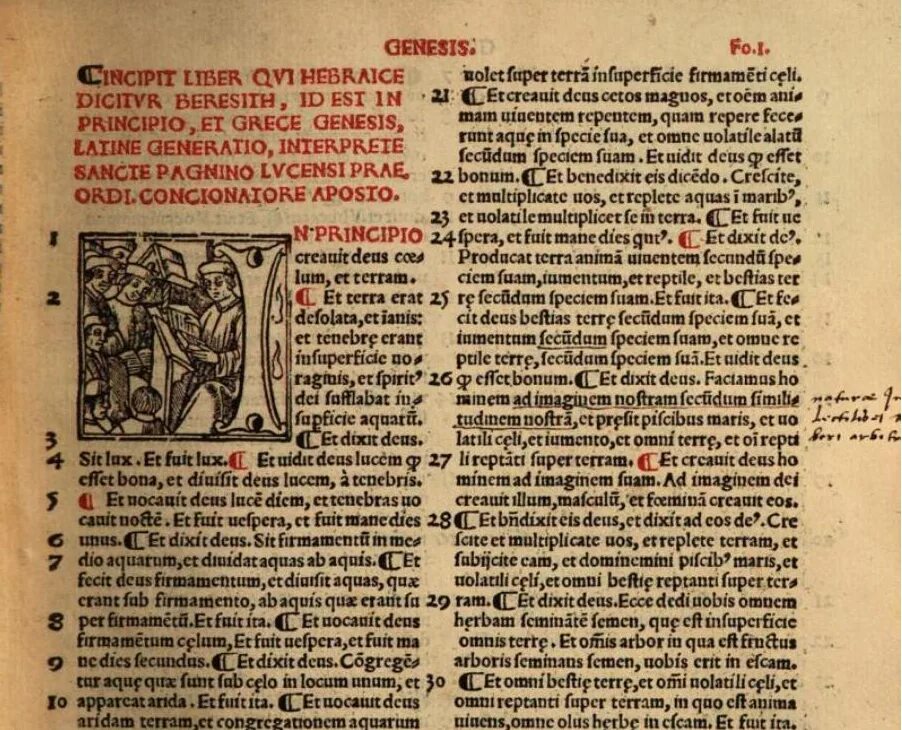 GENESIS.
Fo.I.
⸿INCIPIT LIBER QVI HEBRAICE
DICITVR BERESITH, ID EST IN
PRINCIPIO, ET GRECE GENESIS,
LATINE GENERATIO, INTERPRETE
SANCTE PAGNINO LVCENSI PRAE,
ORDI. CONCIONATORE APOSTO.
1 IN PRINCIPIO
creauit deus cœ⸗
lum, et terram.
2 ¶ Et terra erat
desolata, et īanis:
et tenebrę erant
insuperficie uo⸗
raginis, et spirit⁹
dei sufflabat in⸗
supficie aquarū.
3 ⸿Et dixit deus.
4 Sit lux. Et fuit lux. ¶ Et uidit deus lucem ꝙ
esset bona, et diuisit deus lucem, à tenebris.
5 ¶ Et uocauit deus lucē diem, et tenebras uo
cauit noctē. Et fuit uespera, et fuit mane dies
6 unus. ⸿Et dixit deus. Sit firmamentū in me⸗
7 dio aquarum, et diuidat aquas ab aquis. ⸿Et
fecit deus firmamentum, et diuisit aquas, quæ
erant sub firmamento, ab aquis quæ erant su
8 per firmamētū. Et fuit ita. ⸿Et uocauit deus
firmamētum cęlum, Et fuit uespera, et fuit ma
9 ne dies secundus. ⸿Et dixit deus. Cōgregē⸗
tur aquę quæ sunt sub cęlo in locum unum, et
10 appareat arida. Et fuit ita. ⸿Et uocauit deus
aridam terram, et congregationem aquarum
uolet super terrā insuperficie firmamēti cęli.
21 ⸿Et creauit deus cetos magnos, et oēm ani⸗
mam uiuentem repentem, quam repere fece⸗
runt aquę in specie sua, et omne uolatile alatū
secūdum speciem suam. Et uidit deus ꝙ esset
22 bonum. ⸿Et benedixit eis dicēdo. Crescite,
et multiplicate uos, et replete aquas ī marib⁹,
23 et uolatile multiplicet se in terra. ⸿Et fuit ue
24 spera, et fuit mane dies qut⁹. ⸿Et dixit de⁹.
Producat terra animā uiuentem secundū spe⸗
ciem suam, iumentum, et reptile, et bestias ter
25 rę secūdum speciem suam. Et fuit ita. ⸿Et fe⸗
cit deus bestias terrę secūdum speciem suā, et
iumentum secūdum speciem suam, et omne re
ptile terrę, secūdum speciem suā. Et uidit deus
26 ꝙ esset bonum. ⸿Et dixit deus. Faciamus ho
minem ad imaginem nostram secūdum simili⸗
tudinem nostrā, et pręsit piscibus maris, et uo
latili cęli, et iumento, et omni terrę, et oī repti
27 li reptāti super terram. ¶Et creauit deus ho
minem ad imaginem suam. Ad imaginem dei
creauit illum, masculū, et fœminā creauit eos.
28 ⸿Et bñdixit eis deus, et dixit ad eos de⁹. Cre
scite et multiplicate uos, et replete terram, et
subijcite eam, et dominemini piscib⁹ maris, et
uolatili cęli, et omni bestię reptanti super ter⸗
29 ram. ⸿Et dixit deus. Ecce dedi uobis omnem
herbam seminātē semen, quę est insuperficie
omnis terrę. Et om̄is arbor in qua est fructus
arboris seminans semen, uobis erit in escam.
30 ⸿Et omni bestię terrę, et om̄i uolatili cęli, et
omni reptanti super terram, in quo est anima
uiuens, omne olus herbę in escam. Et fuit ita.
naturæ